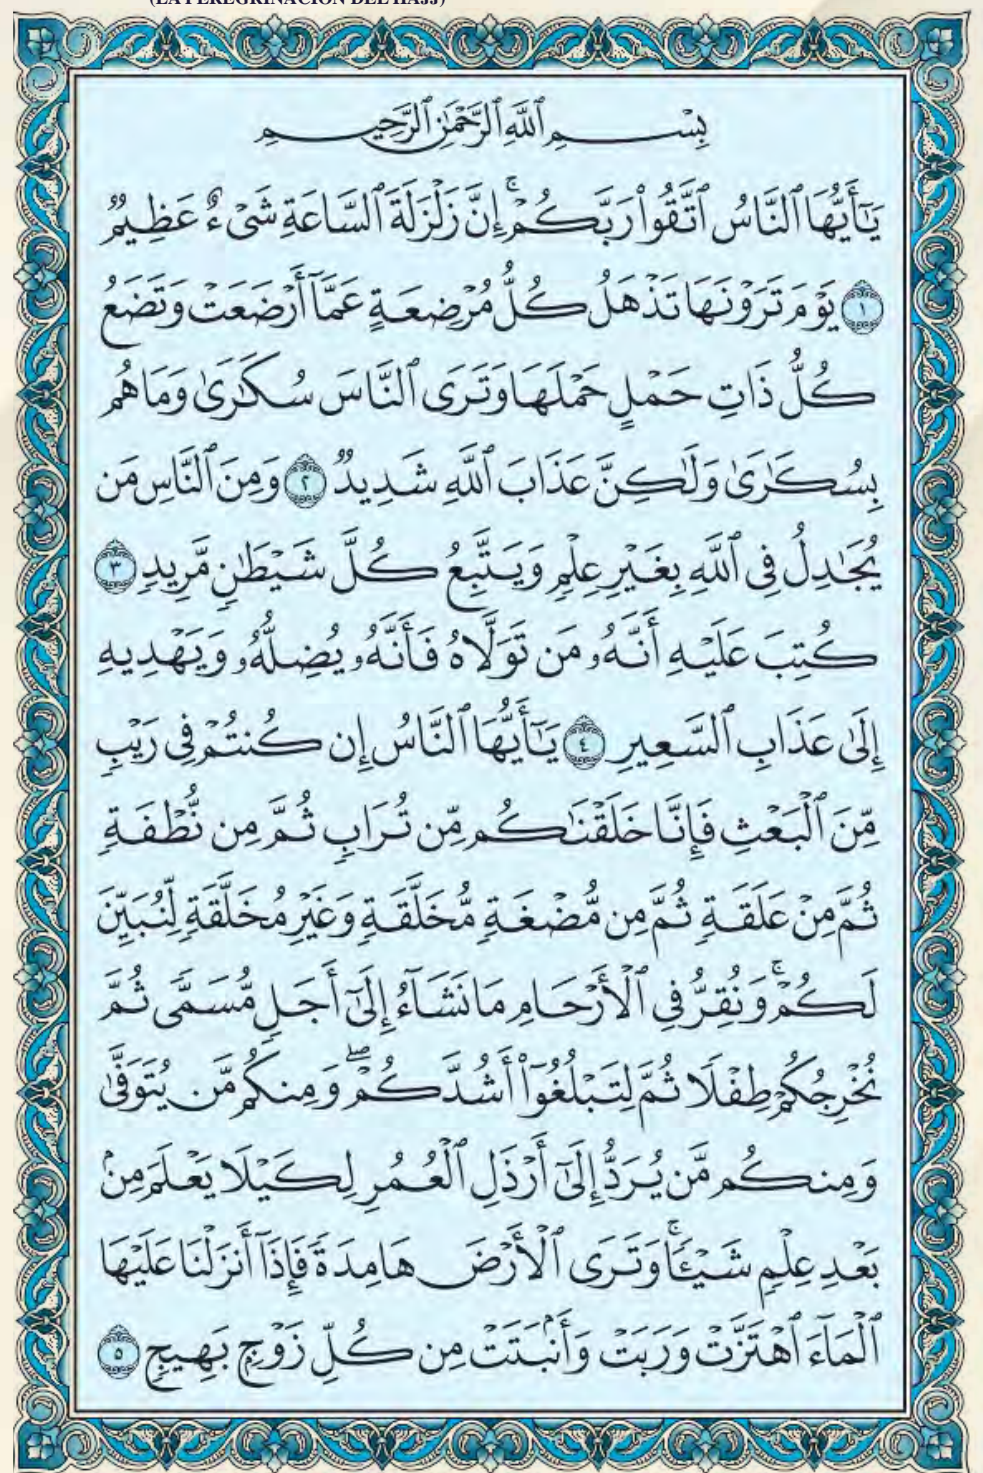 (LA PEREGRINACIÓN DEL HAJJ)
بِسْمِ ٱللَّهِ ٱلرَّحْمَٰنِ ٱلرَّحِيمِ
يَٰٓأَيُّهَا ٱلنَّاسُ ٱتَّقُوا۟ رَبَّكُمْ ۚ إِنَّ زَلْزَلَةَ ٱلسَّاعَةِ شَىْءٌ عَظِيمٌ
١ يَوْمَ تَرَوْنَهَا تَذْهَلُ كُلُّ مُرْضِعَةٍ عَمَّآ أَرْضَعَتْ وَتَضَعُ
كُلُّ ذَاتِ حَمْلٍ حَمْلَهَا وَتَرَى ٱلنَّاسَ سُكَٰرَىٰ وَمَا هُم
بِسُكَٰرَىٰ وَلَٰكِنَّ عَذَابَ ٱللَّهِ شَدِيدٌ ٢ وَمِنَ ٱلنَّاسِ مَن
يُجَٰدِلُ فِى ٱللَّهِ بِغَيْرِ عِلْمٍ وَيَتَّبِعُ كُلَّ شَيْطَٰنٍ مَّرِيدٍ ٣
كُتِبَ عَلَيْهِ أَنَّهُۥ مَن تَوَلَّاهُ فَأَنَّهُۥ يُضِلُّهُۥ وَيَهْدِيهِ
إِلَىٰ عَذَابِ ٱلسَّعِيرِ ٤ يَٰٓأَيُّهَا ٱلنَّاسُ إِن كُنتُمْ فِى رَيْبٍ
مِّنَ ٱلْبَعْثِ فَإِنَّا خَلَقْنَٰكُم مِّن تُرَابٍ ثُمَّ مِن نُّطْفَةٍ
ثُمَّ مِنْ عَلَقَةٍ ثُمَّ مِن مُّضْغَةٍ مُّخَلَّقَةٍ وَغَيْرِ مُخَلَّقَةٍ لِّنُبَيِّنَ
لَكُمْ ۚ وَنُقِرُّ فِى ٱلْأَرْحَامِ مَا نَشَآءُ إِلَىٰٓ أَجَلٍ مُّسَمًّى ثُمَّ
نُخْرِجُكُمْ طِفْلًا ثُمَّ لِتَبْلُغُوٓا۟ أَشُدَّكُمْ ۖ وَمِنكُم مَّن يُتَوَفَّىٰ
وَمِنكُم مَّن يُرَدُّ إِلَىٰٓ أَرْذَلِ ٱلْعُمُرِ لِكَيْلَا يَعْلَمَ مِنۢ
بَعْدِ عِلْمٍ شَيْـًٔا ۚ وَتَرَى ٱلْأَرْضَ هَامِدَةً فَإِذَآ أَنزَلْنَا عَلَيْهَا
ٱلْمَآءَ ٱهْتَزَّتْ وَرَبَتْ وَأَنۢبَتَتْ مِن كُلِّ زَوْجٍۭ بَهِيجٍ ٥